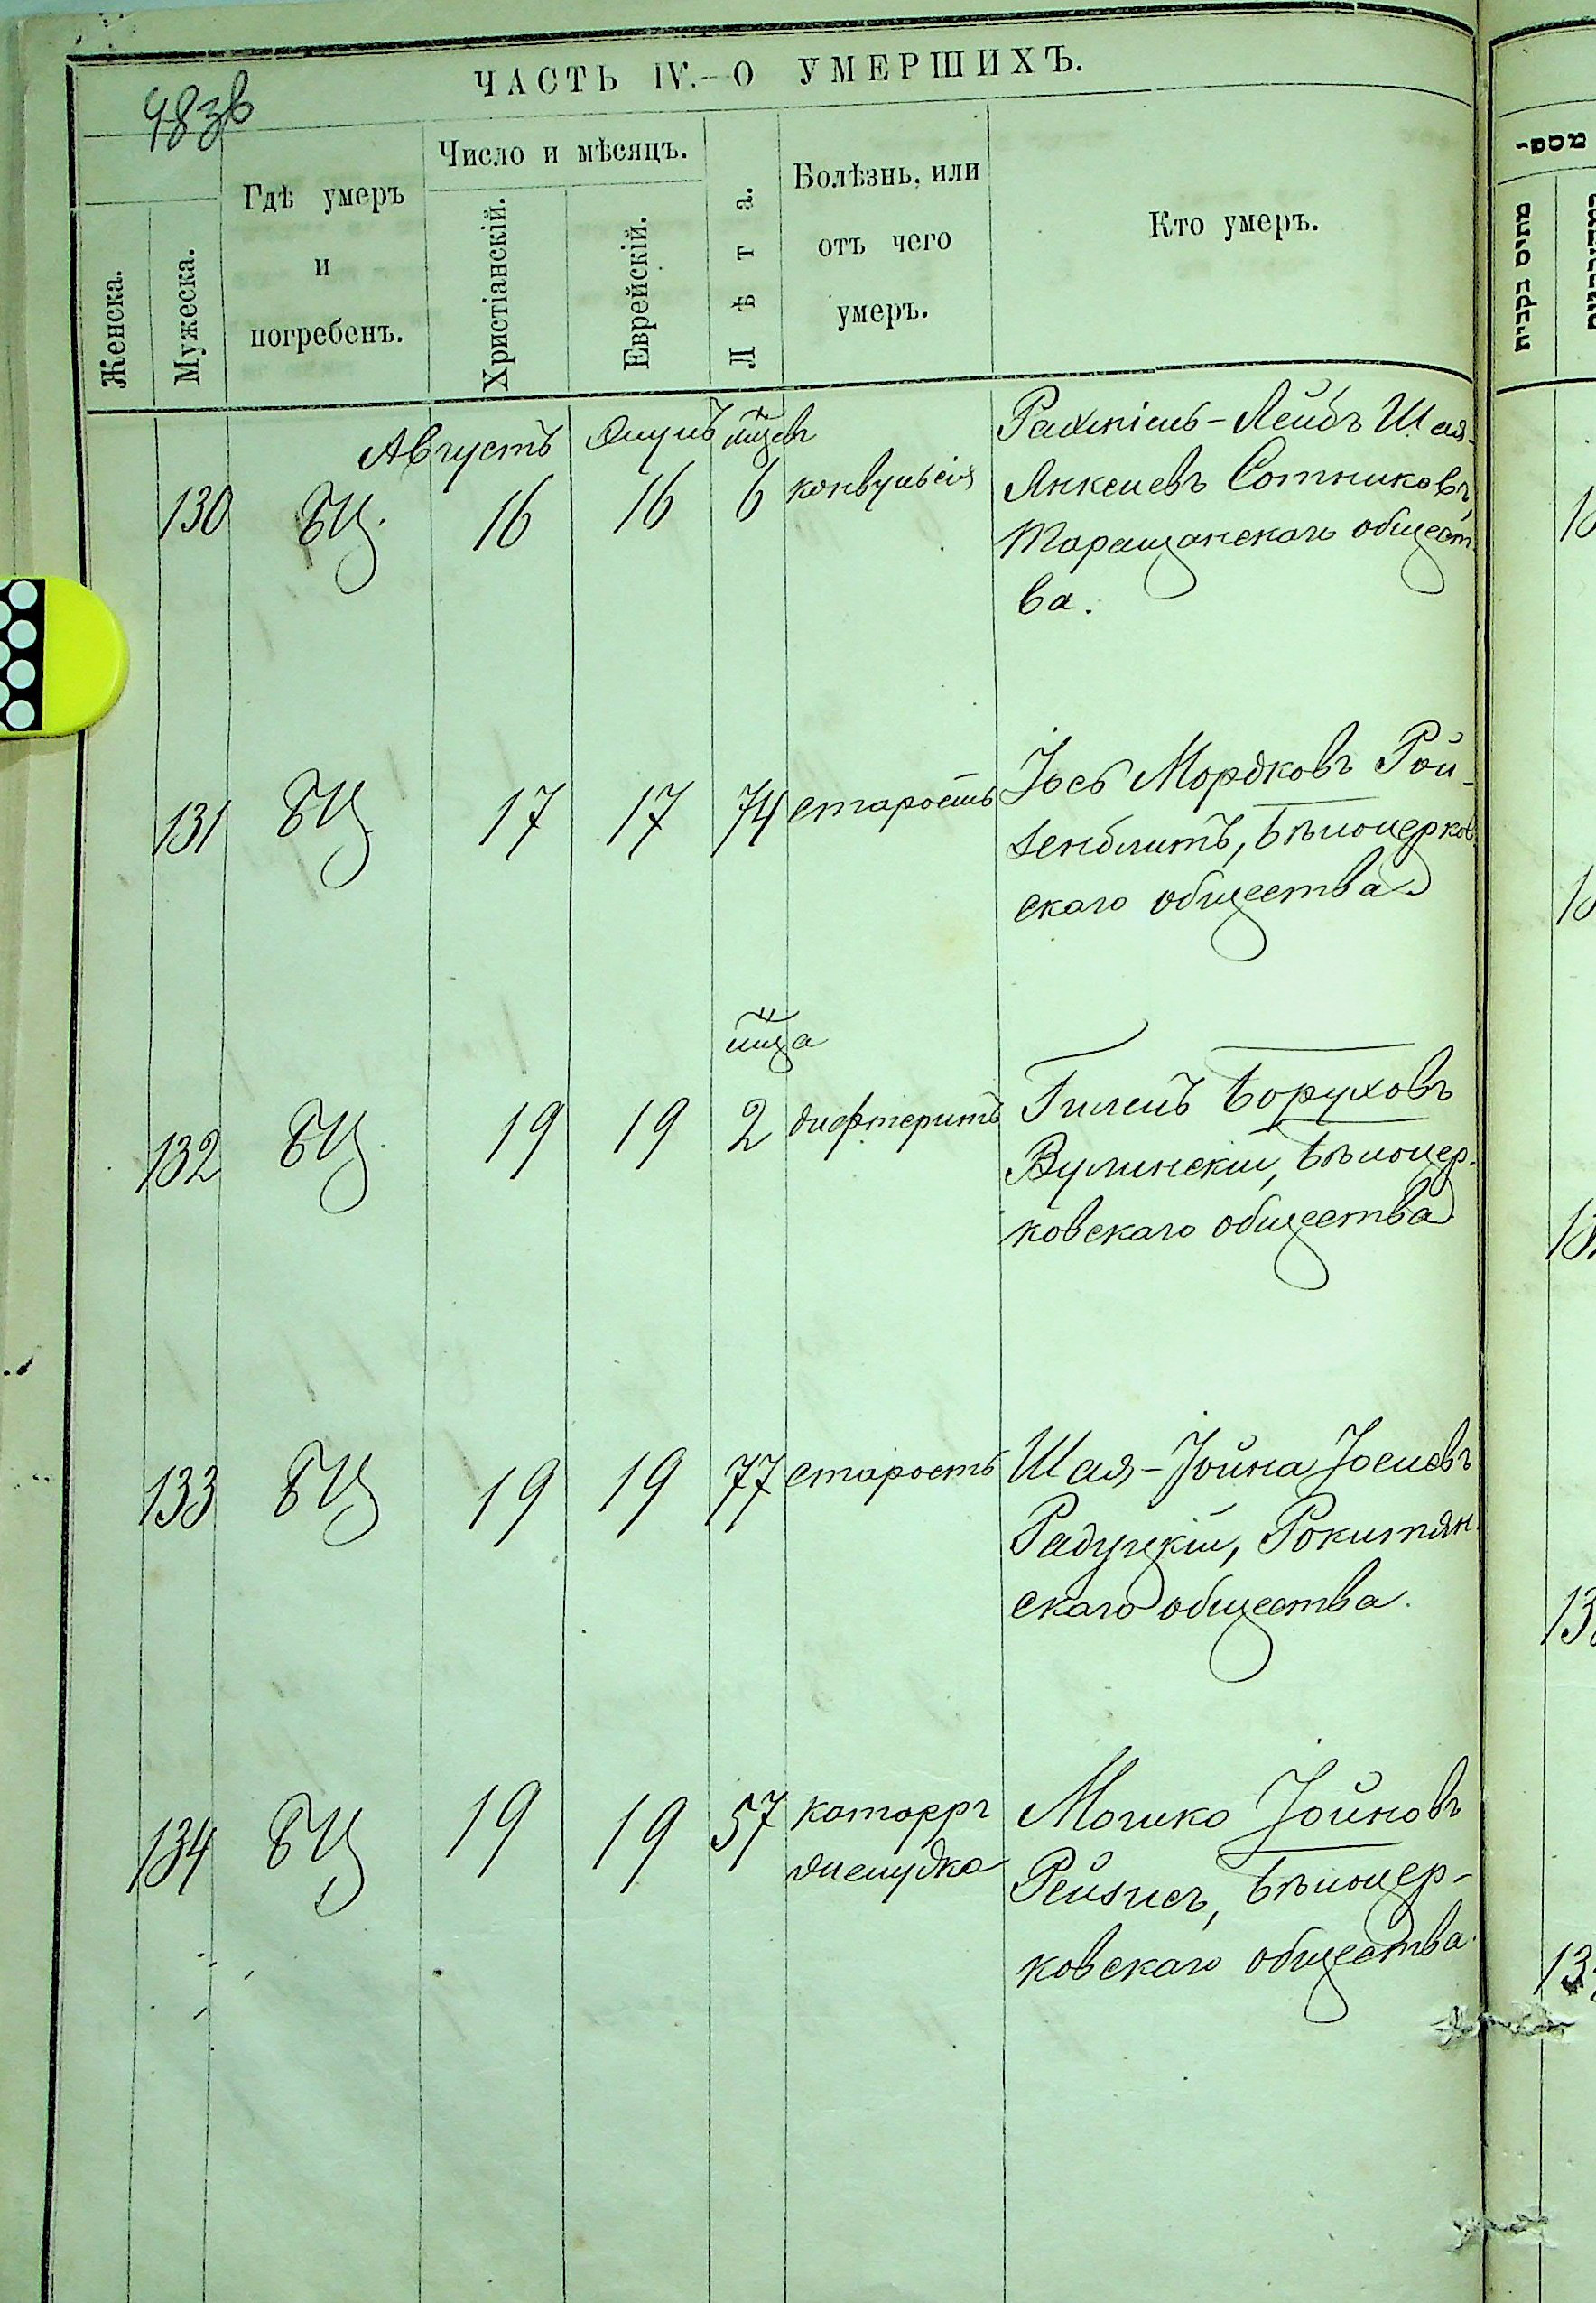 ЧАСТЬ IV.—О УМЕРШИХЪ.
48зв
Женска.
Мужеска.
Гдѣ умеръ
и
погребенъ.
Число и мѣсяцъ.
Христіанскій.
Еврейскій.
Лѣта.
Болѣзнь, или
отъ чего
умеръ.
Кто умеръ.
Августъ Элулъ м-цевъ
130 БЦ. 16 16 6 конвульсія
Рахміель-Лейбъ Шая-
Янкелевъ Сотниковъ,
Таращанскаго общест-
ва.
131 БЦ. 17 17 74 старость
Іось Мордковъ Рой-
зенблитъ, Бѣлоцерков-
скаго общества.
м-ца
132 БЦ. 19 19 2 дифтеритъ
Гилелъ Боруховъ
Вулинскій, Бѣлоцер-
ковскаго общества
133 БЦ 19 19 77 старость
Шая-Іойна Іоселевъ
Радуцкій, Рокитян-
скаго общества.
134 БЦ 19 19 57 катарръ
желудка
Мошко Іойновъ
Рейзисъ, Бѣлоцер-
ковскаго общества.